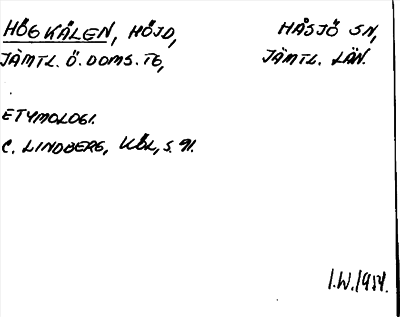 HÖGKÅLEN, HÖJD, HÅSJÖ SN,
JÄMTL. Ö. DOMS. TG, JÄMTL. LÄN.
ETYMOLOGI.
C. LINDBERG, KÖL, S. 91.
I.W. 1954.